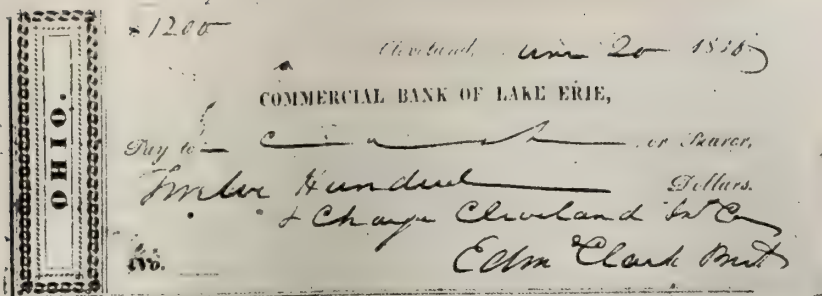 $1200
Cleveland, June 20 183
COMMERCIAL BANK OF LAKE ERIE,
Pay to C a s h or Bearer,
Twelve Hundred Dollars.
& Charge Cleveland Ins Co
Edm Clark Prest
No.
OHIO.